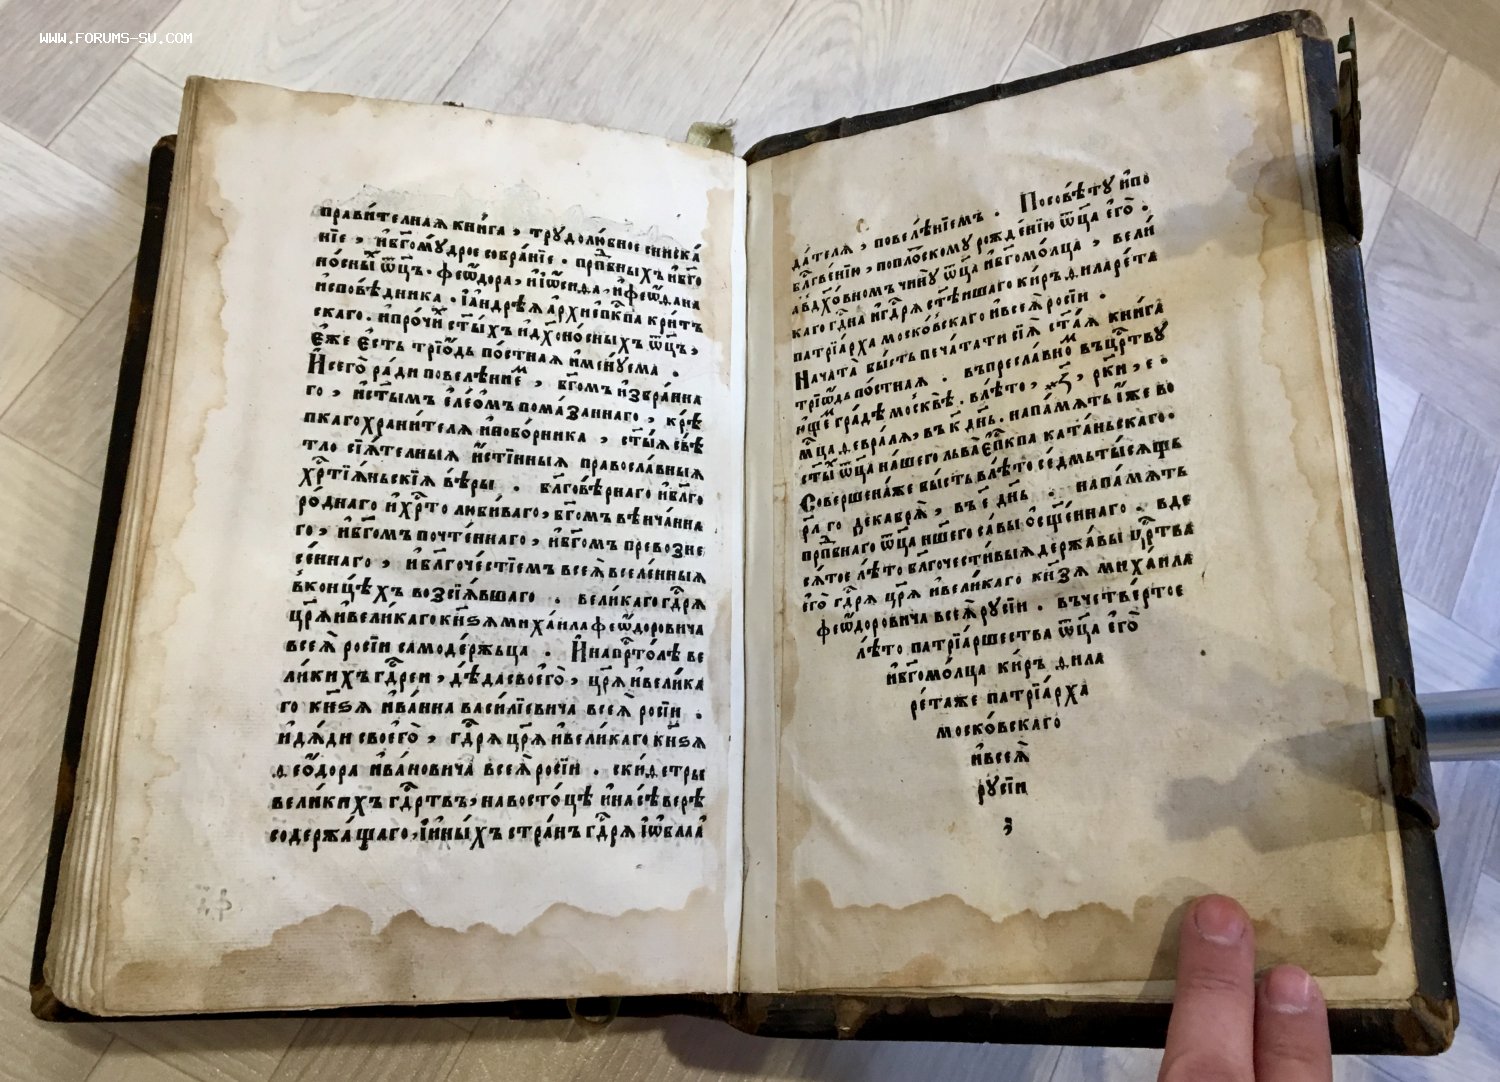 WWW.FORUMS-SU.COM
прави́телная кни́га , трудолю́бное сниска́
нїе , и҆бг҃ому́дрое собра́нїе . прпⷣбныхъ и҆бг҃о
но́сныⷯ ѿц҃ъ . феѡ҆́дора , и҆їѡ҆́сифа , и҆феѡ҆фана
и҆сповѣ́дника . і҆андрѣ́я а҆рхїепⷭ҇кпа кри́тъ
скаго . и҆про́чиⷯ ст҃ы́хъ и҆дх҃оно́сныхъ ѿц҃ъ ,
є҆́же є҆́сть трїѡ҆́дь по́стная и҆мену́ема .
И҆сего̀ ра́ди повелѣ́нїеⷨ , бг҃омъ и҆збра́нна
го , и҆ст҃ы́мъ є҆ле́омъ пома́заннаго , крѣ́
пкаго храни́теля и҆побо́рника , ст҃ы́я свѣ́
тло сїя́телныя и҆́стинныя правосла́вныя
хрⷭ҇тїя́ньскїя вѣ́ры . бл҃говѣ́рнаго и҆бл҃го
ро́днаго и҆хрⷭ҇то люби́ваго , бг҃омъ вѣнча́нна
го , и҆бг҃омъ почте́ннаго , и҆бг҃омъ превозне
се́ннаго , и҆бл҃гоче́стїемъ всея̀ вселе́нныя
вконцѣ́хъ возсїя́вшаго . вели́каго гдⷭ҇ря
цр҃я̀ и҆вели́каго кн҃ѕя миха́ила феѡ҆́доровича
всея̀ росі́и самоде́ржьца . И҆напрⷭ҇то́лѣ ве
ли́кихъ гдⷭ҇реи , дѣ́да своего̀ , цр҃я̀ и҆вели́ка
го кн҃ѕя и҆ва́нна васи́лїевича всея̀ росі́и .
и҆дя́ди своего̀ , гдⷭ҇ря цр҃я̀ и҆вели́каго кн҃ѕя
феѡ҆́дора и҆ва́новича всея̀ росі́и . ски́фетры
вели́кихъ гдⷭ҇ртвъ , навосто́цѣ и҆насѣ́верѣ
содержа́щаго , і҆и҆ны́хъ стра́нъ гдⷭ҇ря і҆ѡ҆блаа҆
да́теля , повелѣ́нїемъ . Посовѣ́ту и҆по
бл҃гве́нїю , попло́скому рожде́нїю ѿц҃а є҆го̀ .
а҆вдх҃о́вномъ чи́ну ѿц҃а и҆бг҃омо́лца , вели́
каго гдⷭ҇на и҆гдⷭ҇ря ст҃ѣ́ишаго ки́ръ филаре́та
патрїа́рха моско́вскаго и҆всея̀ росі́и .
Начата̀ бы́сть печа́тати сїя̀ ст҃а́я кни́га
трїѡ҆́дь по́стная . въпресла́вноⷨ въцрⷭ҇твꙋ
ющеⷨ гра́дѣ москвѣ̀ . влѣ́то , ҂з҃ , рки , е .
мцⷭ҇а февра́ля , въ к҃ дн҃ь . напа́мять и҆́же во
ст҃ы́ⷯ ѿц҃а на́шего льва̀ є҆пⷭ҇кпа ката́ньскаго .
Соверше́на же бы́сть влѣ́то се́дмьты́сящь
рл҃ го декабря̀ , въ е҃ дн҃ь . напа́мять
прпⷣбнаго ѿц҃а нш҃его са́вы ѡ҆сще́ннаго . вде
ся́тое лѣ́то бл҃гочести́выя держа́вы црⷭ҇тва
є҆го̀ гдⷭ҇ря цр҃я̀ и҆вели́каго кн҃зя миха́ила
феѡ҆́доровича всея̀ русі́и . въчетве́ртое
лѣ́то патрїа́ршества ѿц҃а є҆го̀
и҆бг҃омо́лца ки́ръ фила
ре́та же патрїа́рха
моско́вскаго
и҆всея̀
русі́и